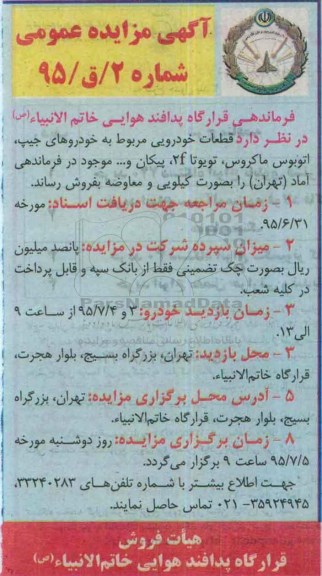 آگهی مزایده عمومی
شماره ۲/ق/۹۵
فرماندهی قرارگاه پدافند هوایی خاتم الانبیاء(ص)
در نظر دارد قطعات خودرویی مربوط به خودروهای جیپ،
اتوبوس ماکروس، تویوتا ۲f، پیکان و... موجود در فرماندهی
آماد (تهران) را بصورت کیلویی و معاوضه بفروش رساند.
۱ - زمان مراجعه جهت دریافت اسناد: مورخه
۹۵/۶/۳۱.
۲ - میزان سپرده شرکت در مزایده: پانصد میلیون
ریال بصورت چک تضمینی فقط از بانک سپه و قابل پرداخت
در کلیه شعب.
۳ - زمان بازدید خودرو: ۳ و ۹۵/۷/۴ از ساعت ۹
الی ۱۳.
۴ - محل بازدید: تهران، بزرگراه بسیج، بلوار هجرت،
قرارگاه خاتم‌الانبیاء.
۵ - آدرس محل برگزاری مزایده: تهران، بزرگراه
بسیج، بلوار هجرت، قرارگاه خاتم‌الانبیاء.
۸ - زمان برگزاری مزایده: روز دوشنبه مورخه
۹۵/۷/۵ ساعت ۹ برگزار می‌گردد.
جهت اطلاع بیشتر با شماره تلفن‌های ۳۳۲۴۰۲۸۳،
۳۵۹۲۴۹۴۵- ۰۲۱ تماس حاصل نمایند.
هیأت فروش
قرارگاه پدافند هوایی خاتم‌الانبیاء(ص)
ParsNamadData